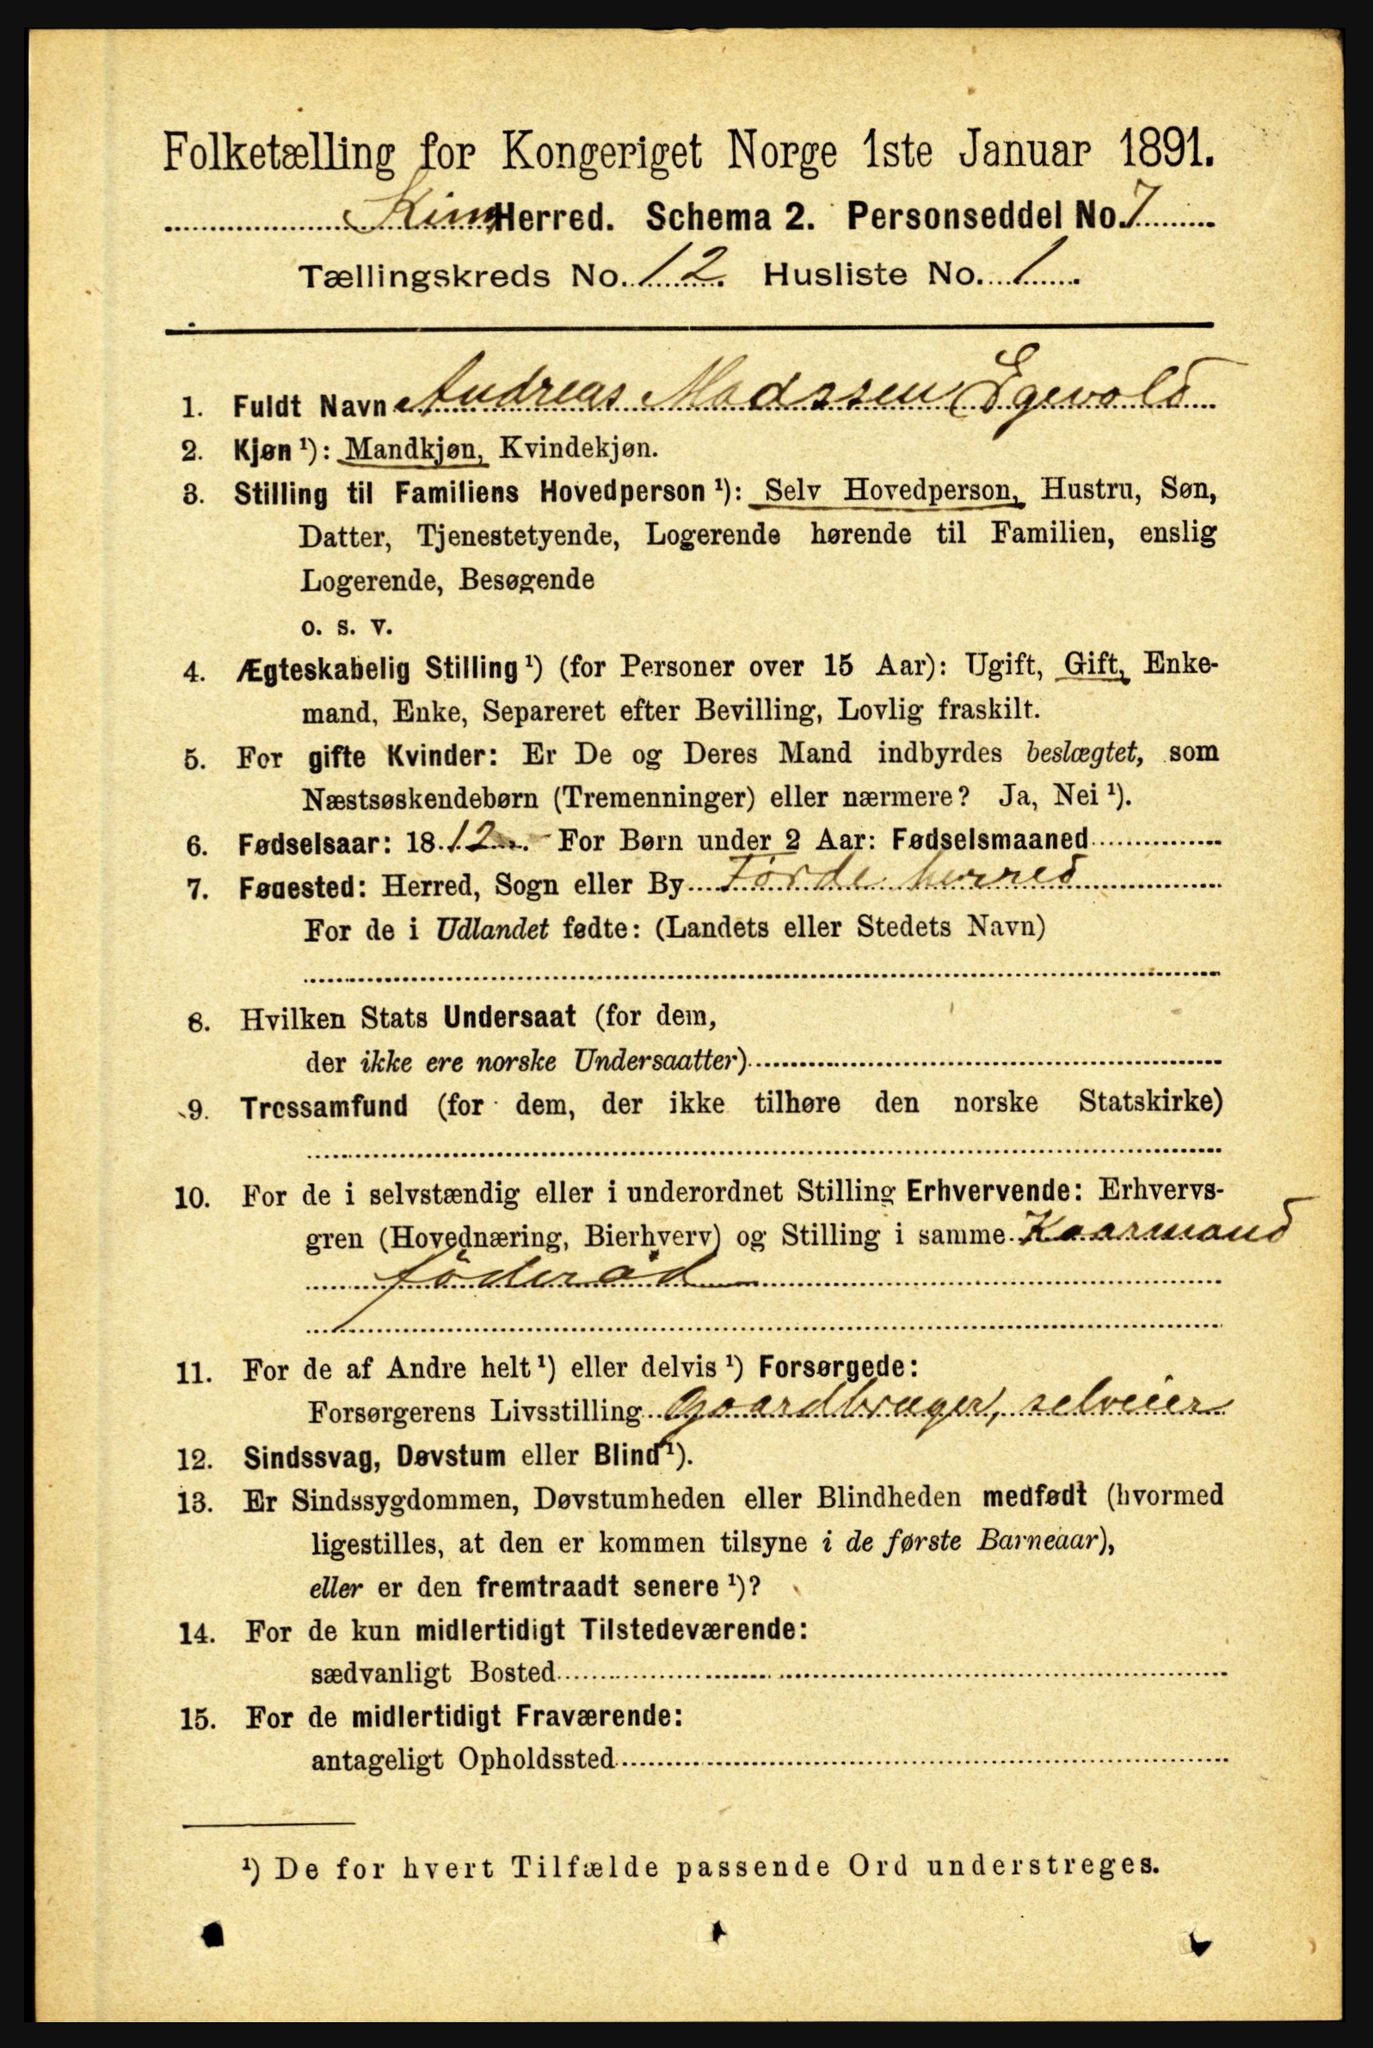 Folketælling for Kongeriget Norge 1ste Januar 1891.
Kinn Herred. Schema 2. Personseddel No. 7
Tællingskreds No. 12. Husliste No. 1
1. Fuldt Navn Andreas Madssen Egevold
2. Kjøn ¹): Mandkjøn, Kvindekjøn.
3. Stilling til Familiens Hovedperson ¹): Selv Hovedperson, Hustru, Søn,
Datter, Tjenestetyende, Logerende hørende til Familien, enslig
Logerende, Besøgende
o. s. v.
4. Ægteskabelig Stilling ¹) (for Personer over 15 Aar): Ugift, Gift, Enke-
mand, Enke, Separeret efter Bevilling, Lovlig fraskilt.
5. For gifte Kvinder: Er De og Deres Mand indbyrdes beslægtet, som
Næstsøskendebørn (Tremenninger) eller nærmere? Ja, Nei ¹).
6. Fødselsaar: 1812. For Børn under 2 Aar: Fødselsmaaned
7. Fødested: Herred, Sogn eller By Førde herred
For de i Udlandet fødte: (Landets eller Stedets Navn)
8. Hvilken Stats Undersaat (for dem,
der ikke ere norske Undersaatter)
9. Trossamfund (for dem, der ikke tilhøre den norske Statskirke)
10. For de i selvstændig eller i underordnet Stilling Erhvervende: Erhvervs-
gren (Hovednæring, Bierhverv) og Stilling i samme Kaarmand
föderåd
11. For de af Andre helt ¹) eller delvis ¹) Forsørgede:
Forsørgerens Livsstilling gaardbruger, selveier
12. Sindssvag, Døvstum eller Blind ¹).
13. Er Sindssygdommen, Døvstumheden eller Blindheden medfødt (hvormed
ligestilles, at den er kommen tilsyne i de første Barneaar),
eller er den fremtraadt senere ¹)?
14. For de kun midlertidigt Tilstedeværende:
sædvanligt Bosted
15. For de midlertidigt Fraværende:
antageligt Opholdssted
¹) De for hvert Tilfælde passende Ord understreges.